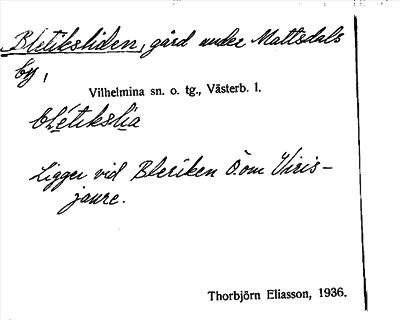 Bletiksliden, gård under Mattsdals
by,
Vilhelmina sn. o. tg., Västerb. l.
blétikslia
Ligger vid Bleriken Ö. om Viris-
jaure.
Thorbjörn Eliasson, 1936.